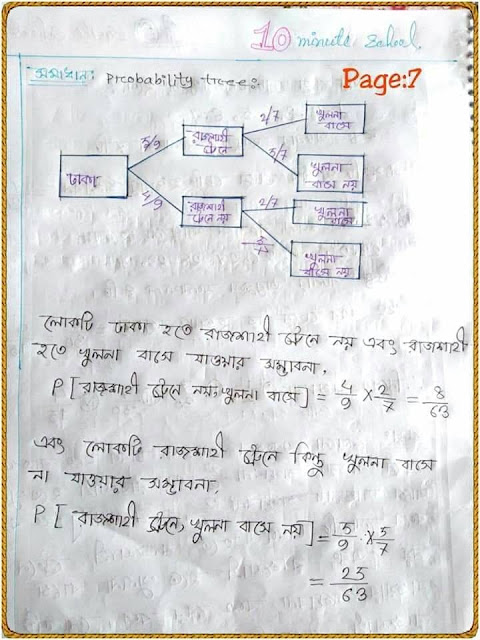 10 minute School
সমাধান: Probability tree:
Page:7
ঢাকা
5/9
4/9
রাজশাহী
ট্রেনে
রাজশাহী
ট্রেনে নয়
2/7
5/7
2/7
5/7
খুলনা
বাসে
খুলনা
বাসে নয়
খুলনা
বাসে
খুলনা
বাসে নয়
লোকটি ঢাকা হতে রাজশাহী ট্রেনে নয় এবং রাজশাহী
হতে খুলনা বাসে যাওয়ার সম্ভাবনা,
P [রাজশাহী ট্রেনে নয়, খুলনা বাসে] = 4/9 × 2/7 = 8/63
এবং লোকটি রাজশাহী ট্রেনে কিন্তু খুলনা বাসে
না যাওয়ার সম্ভাবনা,
P [রাজশাহী ট্রেনে, খুলনা বাসে নয়] = 5/9 × 5/7
= 25/63